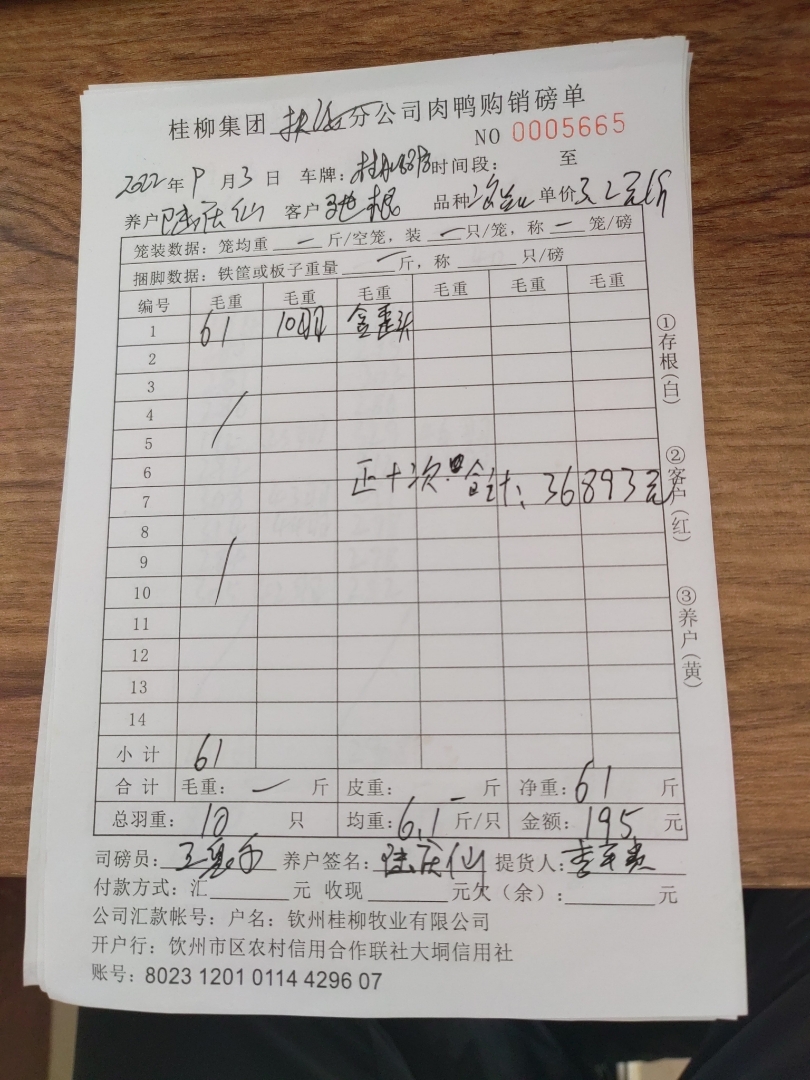 桂柳集团 分公司肉鸭购销磅单
NO 0005665
2022年9月3日 车牌: 时间段: 至
养户 陆庆仙 客户 品种 单价3.2元/斤
笼装数据: 笼均重 一 斤/空笼, 装 一 只/笼, 称 一 笼/磅
捆脚数据: 铁筐或板子重量 一 斤, 称 只/磅
编号 毛重 毛重 毛重 毛重 毛重 毛重
1 61 10只
2
3
4
5
6
正十次 合计: 36893元
7
8
9
10
11
12
13
14
小计 61
合计 毛重: 一 斤 皮重: 一 斤 净重: 61 斤
总羽重: 10 只 均重: 6.1 斤/只 金额: 195 元
司磅员: 养户签名: 陆庆仙 提货人:
付款方式: 汇 元 收现 元欠(余): 元
公司汇款帐号: 户名: 钦州桂柳牧业有限公司
开户行: 钦州市区农村信用合作联社大垌信用社
账号: 8023 1201 0114 4296 07
①存根(白)
②客户(红)
③养户(黄)